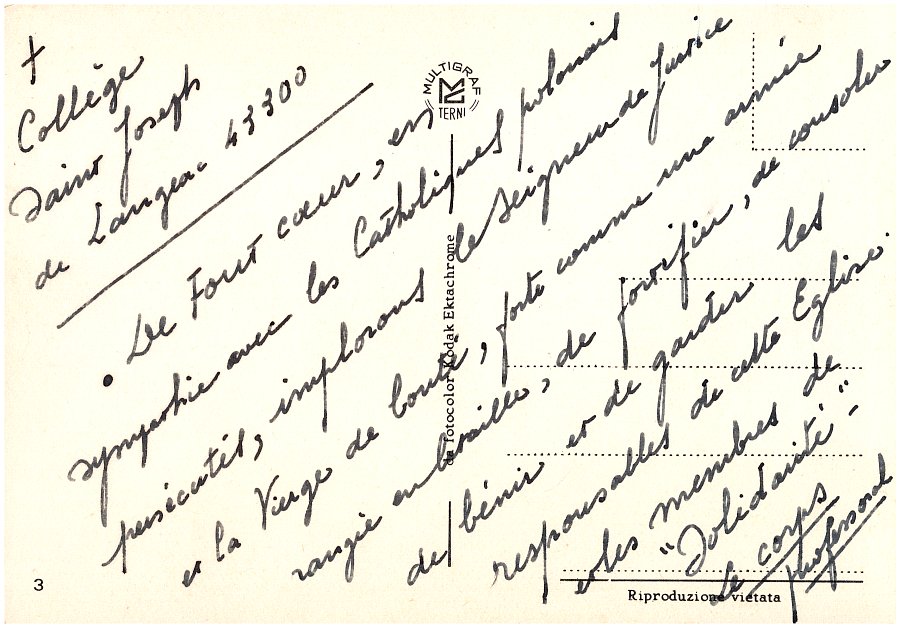 +
Collège
Saint Joseph
de Langeac 43300
• De Tout cœur, en
sympathie avec les Catholiques polonais
persécutés, implorons le Seigneur de Justice
et la Vierge de bonté, forte comme une armée
rangée en bataille, de fortifier, de consoler
de bénir et de garder les
responsables de cette Eglise
et les membres de
"Solidarité" -
Le corps
professoral
MULTIGRAF
TERNI
da Fotocolor Kodak Ektachrome
3
Riproduzione vietata